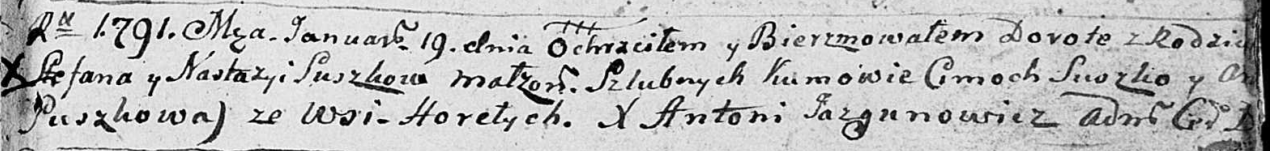 Rᵏᵘ 1791. Mca Januarỹ 19. dnia Ochrzciłem y Bierzmowałem Dorotę z Rodzic
X Stefana y Nastazyi Suszkow małżon. Szlubnych Kumowie Cimoch Suszko y
Puszkowa) ze Wsi Horełych. X Antoni Jazgunowicz Adm̃